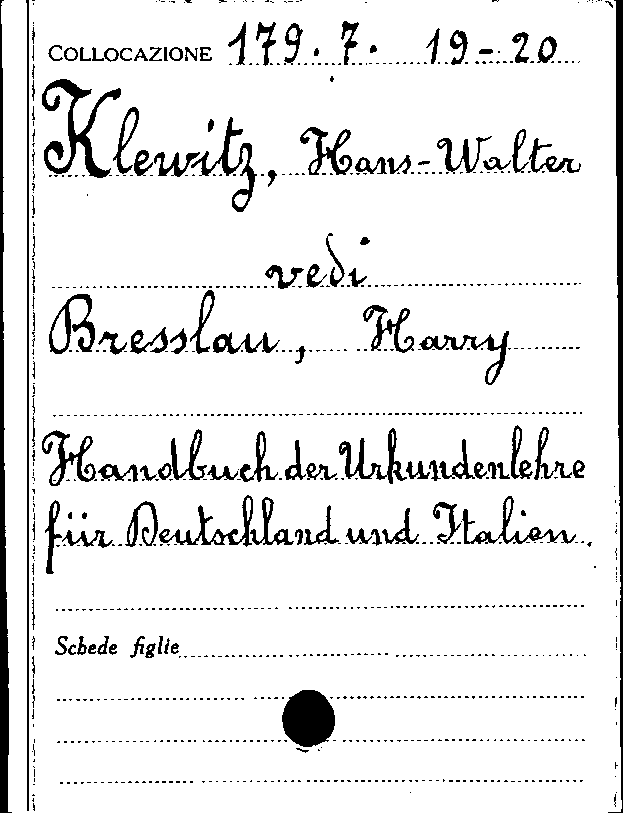 COLLOCAZIONE 179. 7. 19-20
Klewitz, Hans-Walter
vedi
Bresslau, Harry
Handbuch der Urkundenlehre
für Deutschland und Italien.
Schede figlie